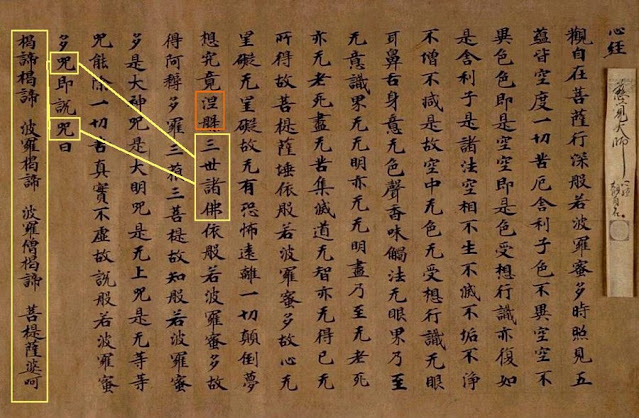 心経
觀自在菩薩行深般若波羅蜜多時照見五
蘊皆空度一切苦厄舍利子色不異空空不
異色色即是空空即是色受想行識亦復如
是舍利子是諸法空相不生不滅不垢不淨
不增不減是故空中无色无受想行識无眼
耳鼻舌身意无色聲香味觸法无眼界乃至
无意識界无无明亦无无明盡乃至无老死
亦无老死盡无苦集滅道无智亦无得已无
所得故菩提薩埵依般若波羅蜜多故心无
罣礙无罣礙故无有恐怖遠離一切顛倒夢
想究竟涅槃三世諸佛依般若波羅蜜多故
得阿耨多羅三藐三菩提故知般若波羅蜜
多是大神咒是大明咒是无上咒是无等等
咒能除一切苦真實不虛故說般若波羅蜜
多咒即說咒曰
揭諦揭諦 波羅揭諦 波羅僧揭諦 菩提薩婆呵